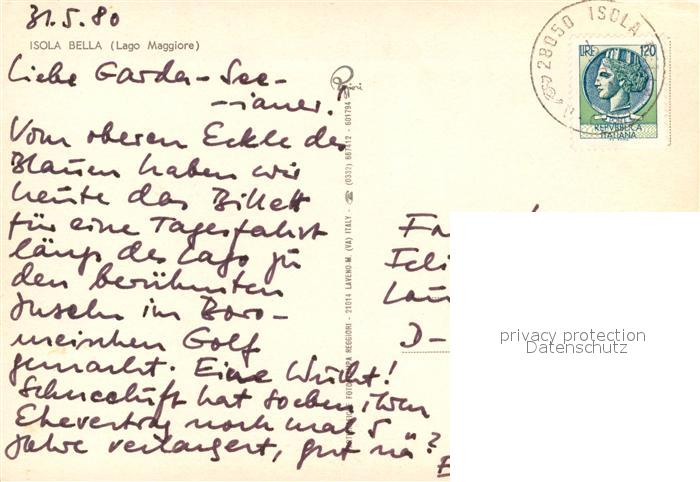 31.5.80
ISOLA BELLA (Lago Maggiore)
Liebe Garda-See-
-ianer!
Vom oberen Eckle des
Blauen haben wir
heute das Billett
für eine Tagesfahrt
längs des Lago zu
den berühmten
Inseln im Boro-
meischen Golf
gemacht. Eine Wucht!
hat soeben ihren
Ehevertrag noch mal 5
Jahre verlängert, gut nä?
28050 ISOLA
LIRE 120
REPVBBLICA
ITALIANA
REGGIORI - 21014 LAVENO-M. (VA) ITALY - ☏ (0332) 667412 - 601794
Feli
D-
privacy protection
Datenschutz